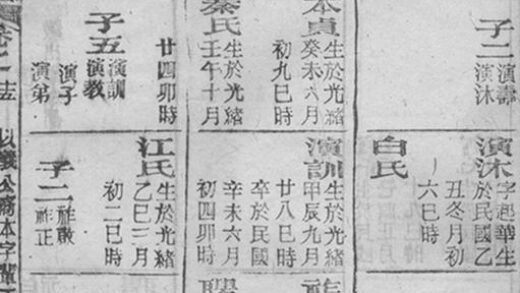 子二
演壽
演沐
本貞
生於光緒
癸未六月
初九巳時
秦氏
生於光緒
壬午十月
廿四卯時
子五
演訓
演教
演子
演弟
演沐
字起華生
於民國乙
丑冬月初
六巳時
白氏
演訓
生於光緒
甲辰九月
廿八巳時
卒於民國
辛未六月
初四卯時
江氏
生於光緒
乙巳三月
初二巳時
子二
祚敢
祚正
以義公裔本字輩